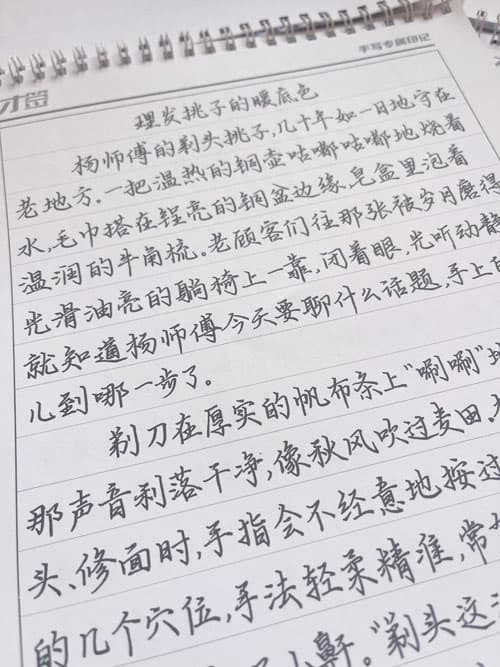 才签
手写专属印记
理发挑子的暖底色
杨师傅的剃头挑子,几十年如一日地守在
老地方。一把温热的铜壶咕嘟咕嘟地烧着
水,毛巾搭在锃亮的铜盆边缘,皂盒里泡着
温润的牛角梳。老顾客们往那张被岁月磨得
光滑油亮的躺椅上一靠,闭着眼,光听动静
就知道杨师傅今天要聊什么话题,手上的
儿到哪一步了。
剃刀在厚实的帆布条上“唰唰”地
那声音利落干净,像秋风吹过麦田。
头、修面时,手指会不经意地按过
的几个穴位,手法轻柔精准,常
小鼾。“剃头这